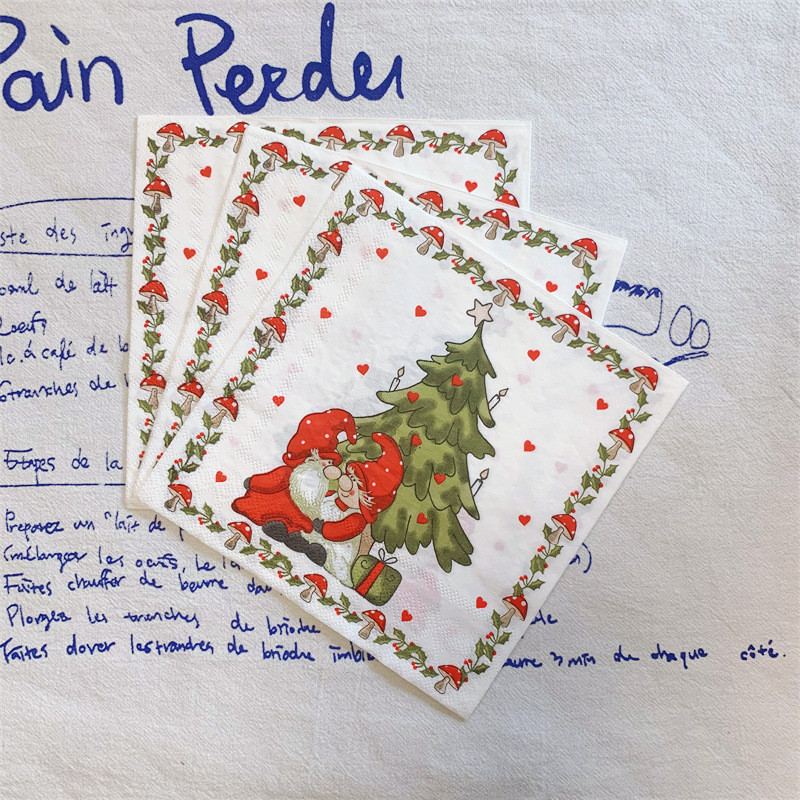 Pain Perdu
ste des ing
de lait
oeufs
c. à café de b
tranches de
Etapes de la
Preparez un "lait de
les oeufs, Le
Faites chauffer de beurre da
Plongez les tranches de brioche
Faites dorer les tranches de brioche imbi 3 min de chaque côté.